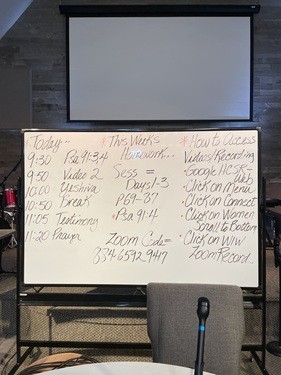 Today:-
9:30 Psa 91:3-4
9:50 Video 2
10:00 Yeshiva
10:50 Break
11:05 Testimony
11:20 Prayer
*This Weeks
Homework...
Sess =
Days 1-3
P69-87
*Psa 91:4
Zoom Code=
834 6592 9447
*How to Access
Videos/Recording
•Google HCSR-
Web
•Click on Menu
•Click on Connect
•Click on Women
Scroll to Bottom
•Click on WIW
Zoom Record..